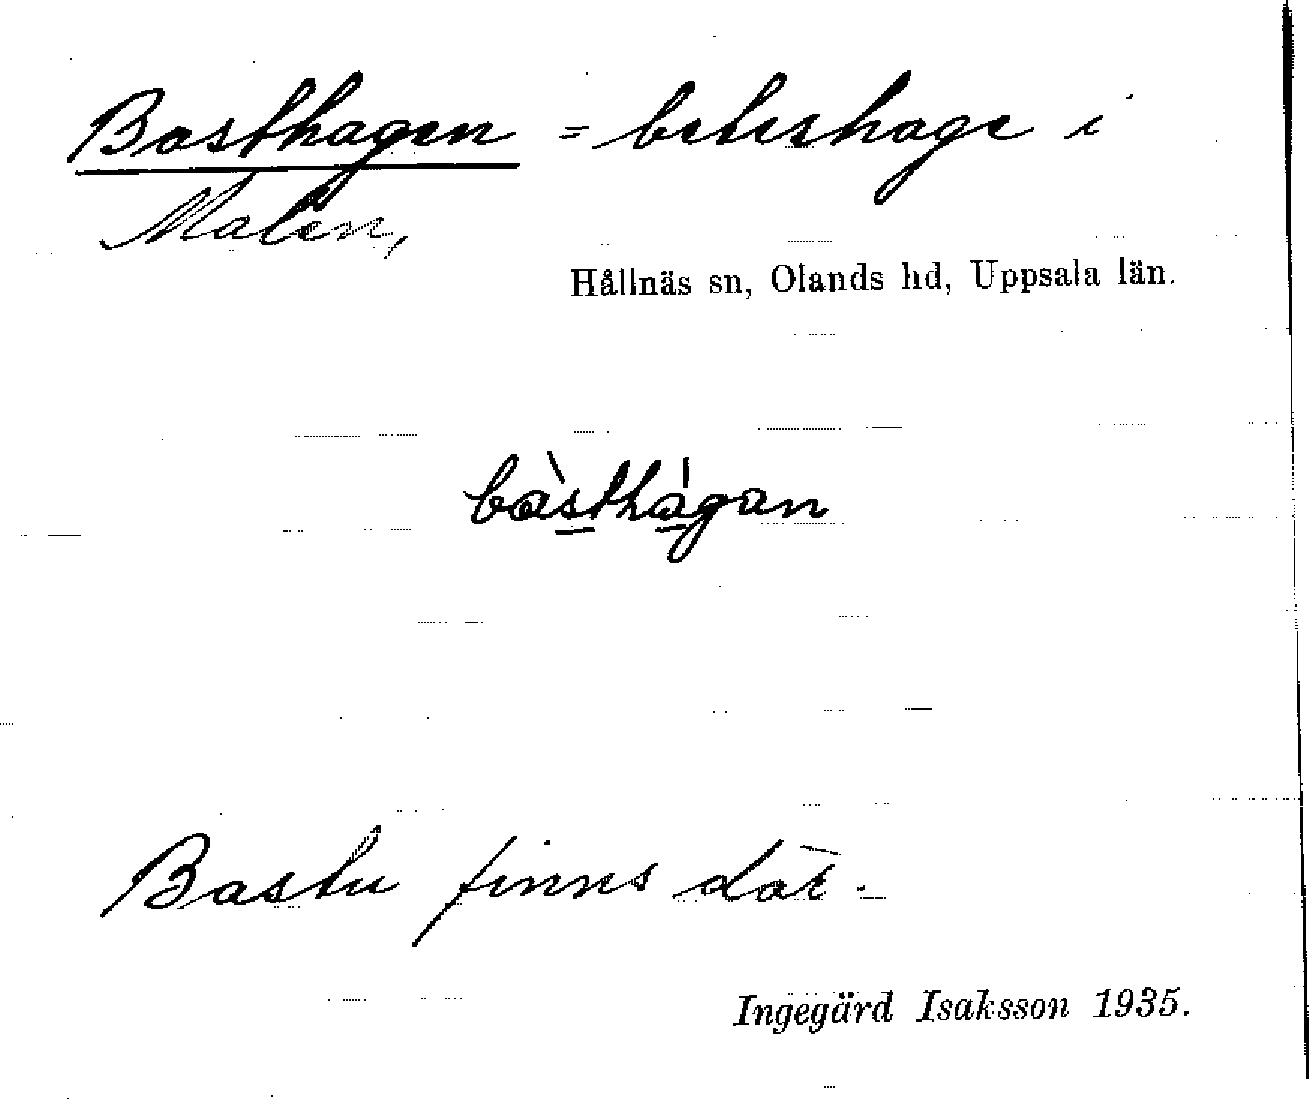 Basthagen = beteshage i
Malen,
Hållnäs sn, Olands hd, Uppsala län.
bàsthágan
Bastu finns där.
Ingegärd Isaksson 1935.